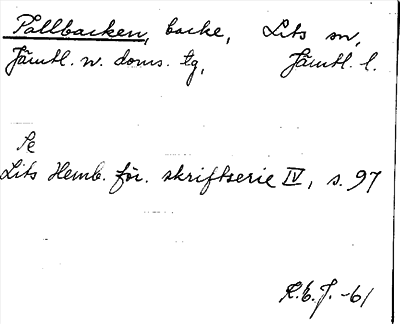 Pallbacken, backe, Lits sn,
Jämtl. n. doms. tg, Jämtl. l.
Se
Lits Hemb. för. skriftserie IV, s. 97
R.E.J. -61